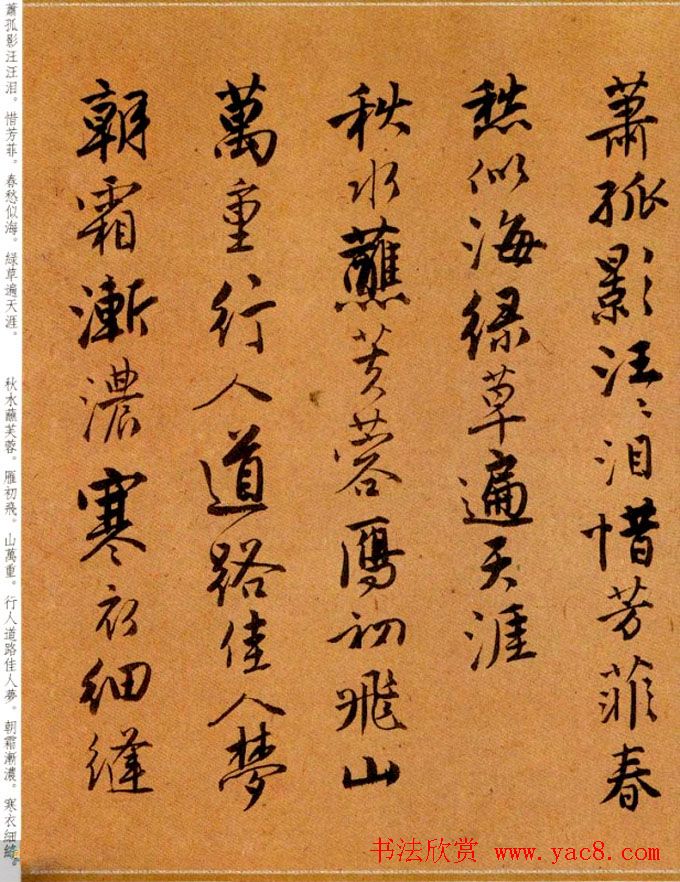 蕭孤影汪〻泪惜芳菲春
愁似海緑草遍天涯
秋水蘸芙蓉鴈初飛山
萬重行人道路佳人夢
朝霜漸濃寒衣細縫
蕭孤影汪汪泪。惜芳菲。春愁似海。緑草遍天涯。 秋水蘸芙蓉。雁初飛。山萬重。行人道路佳人夢。朝霜漸濃。寒衣細縫
书法欣赏 www.yac8.com